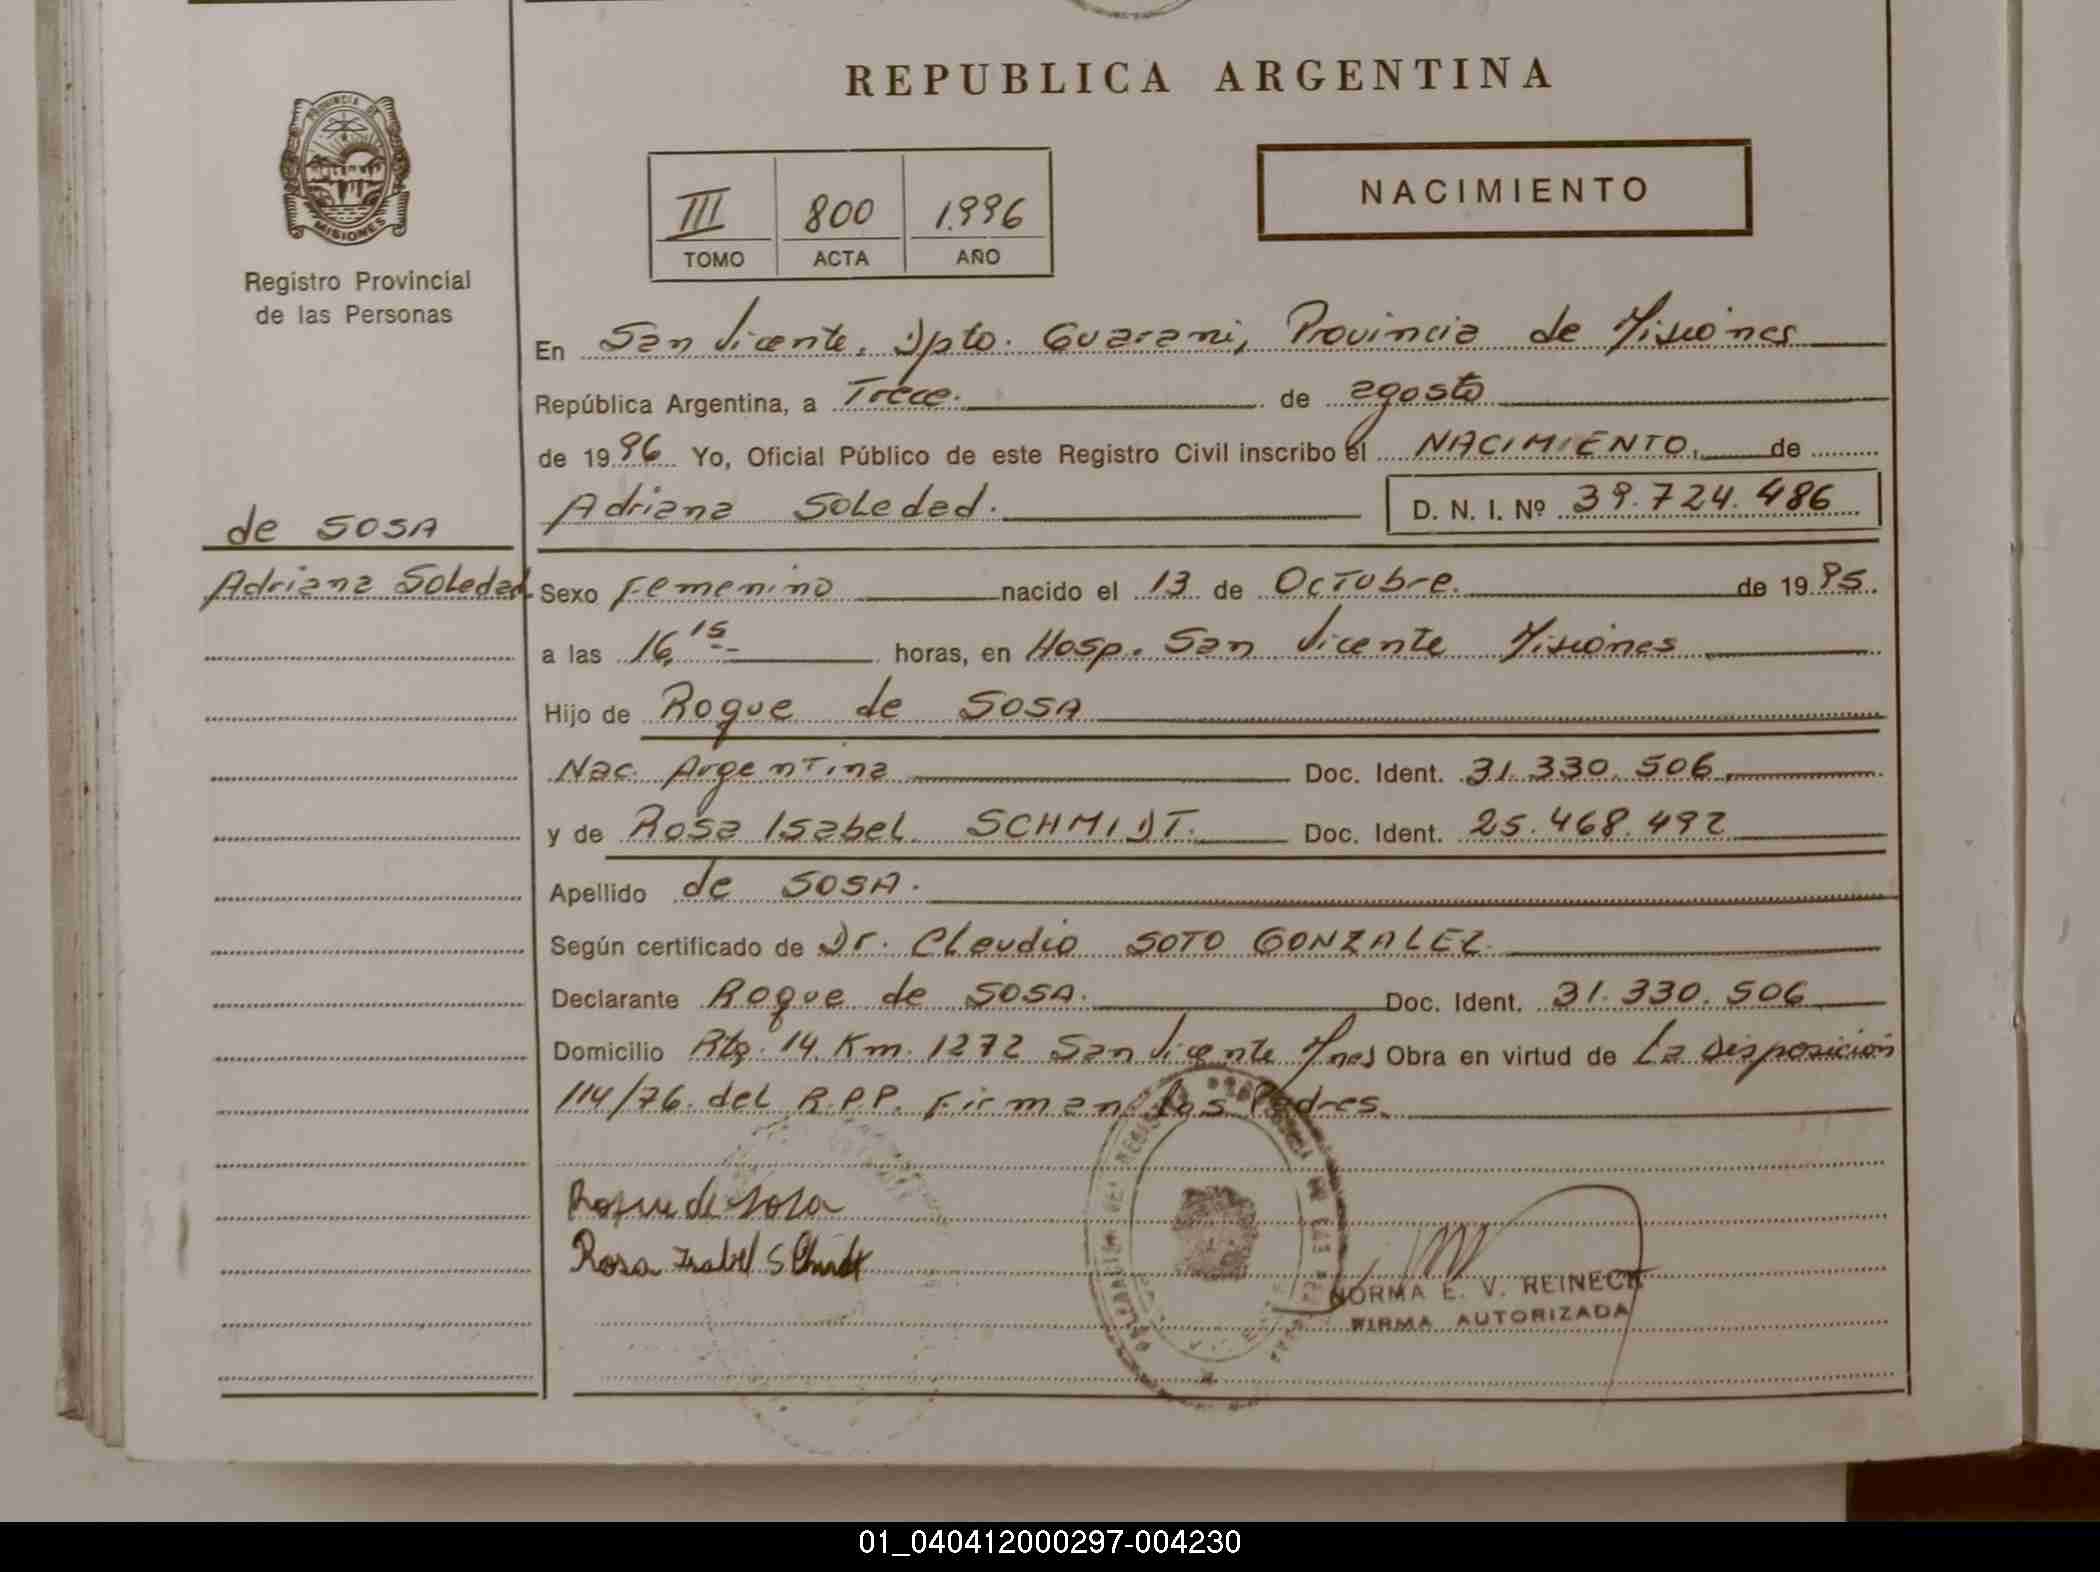 REPUBLICA ARGENTINA
PROVINCIA DE
MISIONES
Registro Provincial
de las Personas
III 800 1.996
TOMO ACTA AÑO
NACIMIENTO
En San Vicente, Dpto. Guarani, Provincia de Misiones
República Argentina, a Trece. de agosto
de 1996 Yo, Oficial Público de este Registro Civil inscribo el NACIMIENTO, de
Adriana Soledad. D. N. I. Nº 39.724.486
de SOSA
Adriana Soledad.
Sexo Femenino nacido el 13 de Octubre. de 1995.
a las 16,15- horas, en Hosp. San Vicente Misiones
Hijo de Roque de SOSA
Nac. Argentina Doc. Ident. 31.330.506,
y de Rosa Isabel SCHMIDT. Doc. Ident. 25.468.492
Apellido de SOSA.
Según certificado de Dr. Claudio SOTO GONZALEZ.
Declarante Roque de SOSA. Doc. Ident. 31.330.506
Domicilio Rta. 14 Km. 1272 San Vicente Mnes Obra en virtud de La Disposición
114/76 del R.P.P. Firman los Padres.
Roque de Sosa
Rosa Isabel Schmidt
NORMA E. V. REINECK
FIRMA AUTORIZADA
01_040412000297-004230